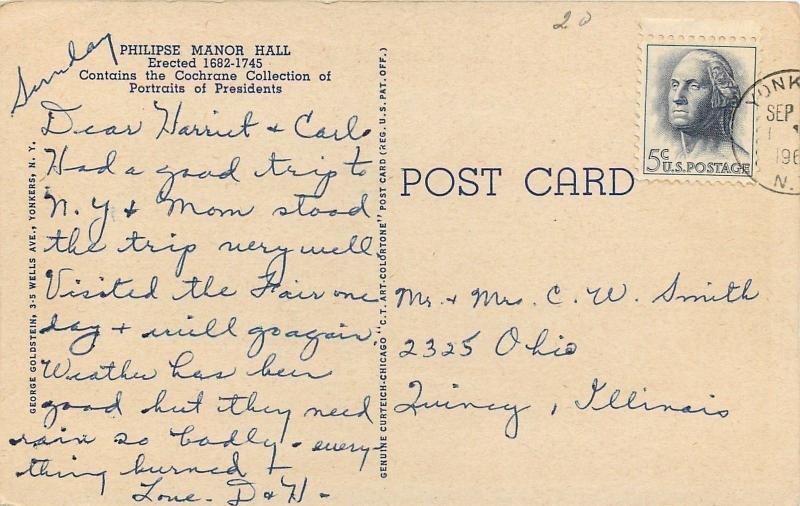 20
Sunday
PHILIPSE MANOR HALL
Erected 1682-1745
Contains the Cochrane Collection of
Portraits of Presidents
Dear Harriet & Carl.
Had a good trip to
N.Y & Mom stood
the trip very well.
Visited the Fair one
day & will go again.
Weather has been
good but they need
rain so badly - every-
thing burned &
Love - D & H -
GEORGE GOLDSTEIN, 3-5 WELLS AVE., YONKERS, N. Y.
GENUINE CURTEICH-CHICAGO "C.T. ART-COLORTONE" POST CARD (REG. U.S. PAT. OFF.)
POST CARD
5c U.S. POSTAGE
YONK
SEP
196
N.
Mr. & Mrs. C. W. Smith
2325 Ohio
Quincy, Illinois